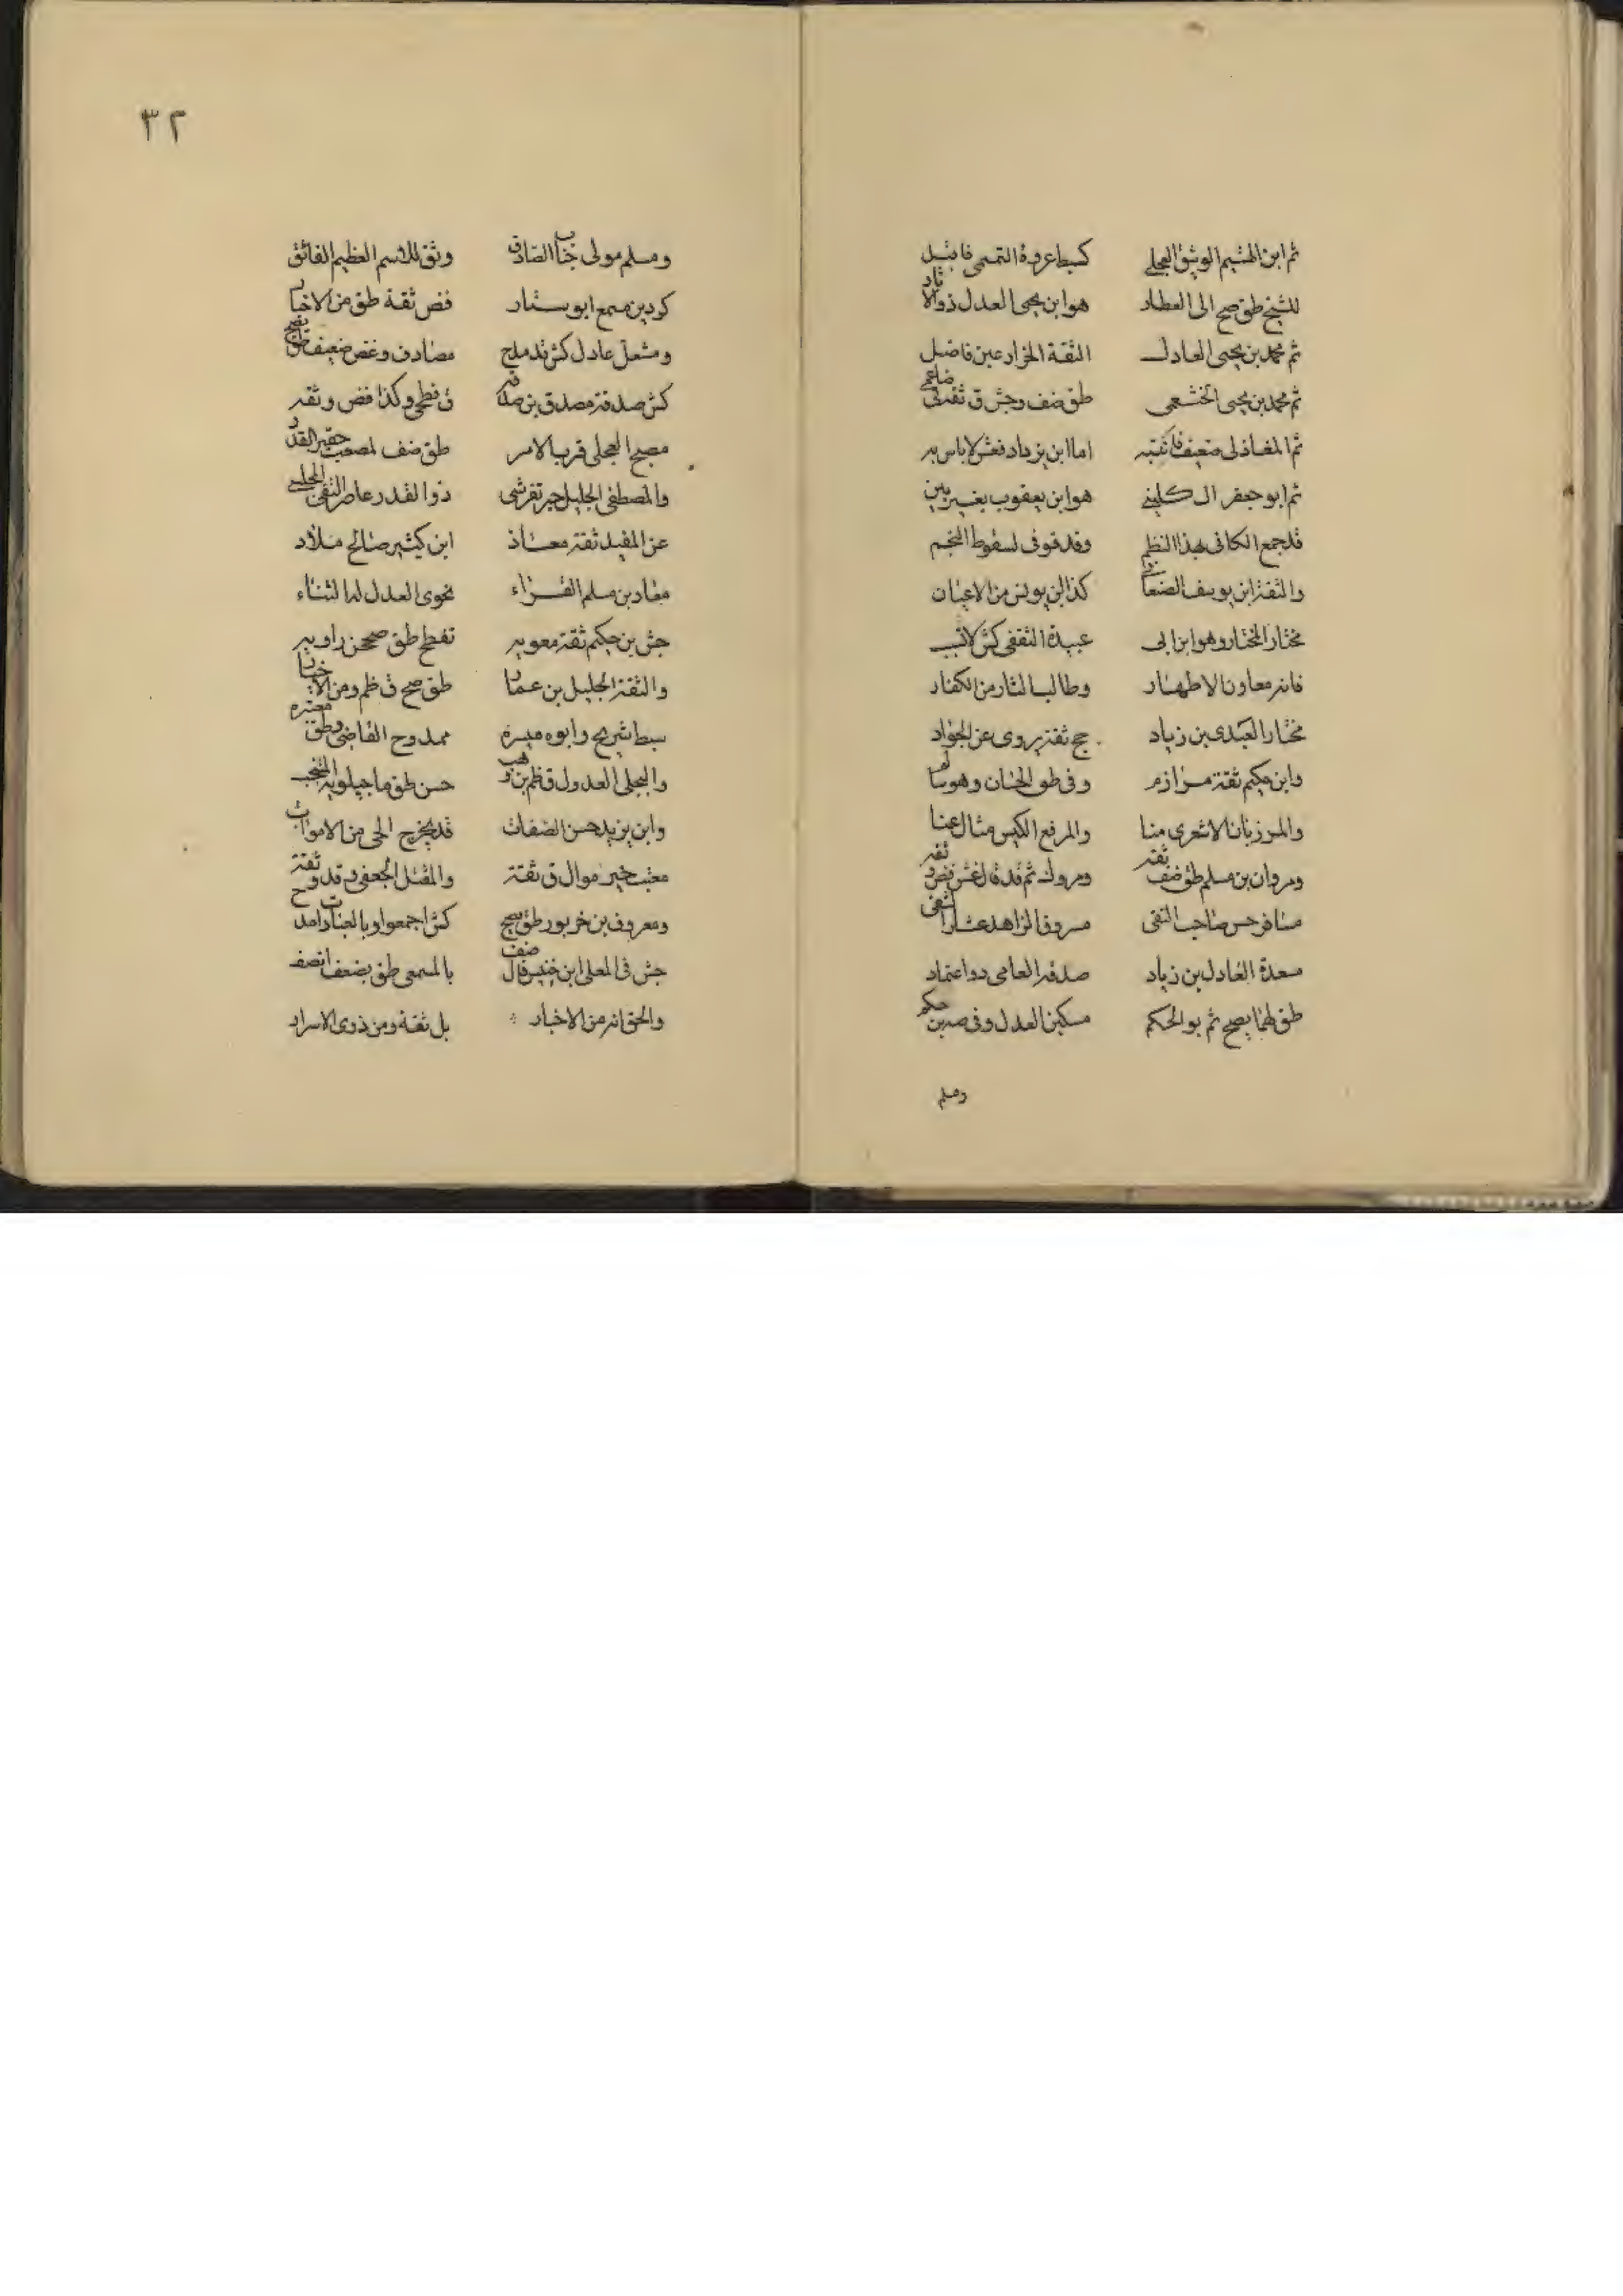 ثم ابن الهثيم الوثيق العجلي كسبط عروة التميمى فاضل
للشيخ طق صح الى العطار هو ابن يحيى العدل ذو الاثار
ثم محمد بن يحيى العادل الثقة الخزاز عين فاضل
ثم محمد بن يحيى الخثعمى طق ضف وجش ق ثقة
ثم المغاذلى ضعيف فانتبه اما ابن يزداد فعش لا باس به
ثم ابو جعفر ال كلينى هو ابن يعقوب بغير مين
قد جمع الكافى بهذا النظم وقد توفى لسقوط النجم
والثقة ابن يوسف الصنعانى كذا ابن يونس من الاعيان
مختار المختار وهو ابن ابى عبيدة الثقفى كش لا تسب
فانه معاون الاطهار وطالب الثار من الكفار
مختار العبدى بن زياد جج ثقة يروى عن الجواد
وابن حكيم ثقة مرازم وفى طق الخان وهو سالم
والمرزبان الاشعرى منا والمرفع الكيس مثال عنا
ومروان بن مسلم طق ضف ثقة ومروك ثم قد قال غش فض وثقه
مسافر حسن صاحب النقى مسروق الزاهد عشار شقى
مسعدة العادل بن زياد صدقة العامى ذو اعتماد
طق لهما يصح ثم بو الحكم مسكين العدل وفى صه بن حكم
ومسلم
٣٢
ومسلم مولى جناب الصادق وثق للاسم العظيم الفائق
كردين مسمع ابو ستار فض ثقة طق من الاخبار
ومشمعل عادل كش قد مدح مصادف وغض ضعيف طق يصح
كش صدقة مصدق بن صدقه ق فطحى وكذا فض وثقه
مصبح العجلى قرب الامر طق ضف لمصعب حقير القدر
والمصطفى الجليل جبر تفرشى ذو القدر عاصر التقى المجلسى
عن المفيد ثقة معاذ ابن كثير صالح ملاذ
معاذ بن مسلم الفراء نحوى العدل له الثناء
جش بن حكيم ثقة معويه تفطح طق صح عن راويه
والثقة الجليل بن عمار طق صح ق ظم ومن الاخيار
سبط شريح وابوه ميسره ممدوح القاضى وطق معتبره
والبجلى العدل ق ظم بن وهب حسن طق ماجيلويه المنتجب
وابن يزيد حسن الصفات قد يخرج الحى من الاموات
معتب خير موال ق ثقة والمفضل الجعفى قدوح ثقة
ومعروف بن خربوذ طق صح كش اجمعوا وبالعبادات امتدح
جش فى المعلى ابن خنيس قال ضف بالمسمعى طق بضعف اتصف
والحق انه من الاخيار بل ثقة ومن ذوى الاسرار